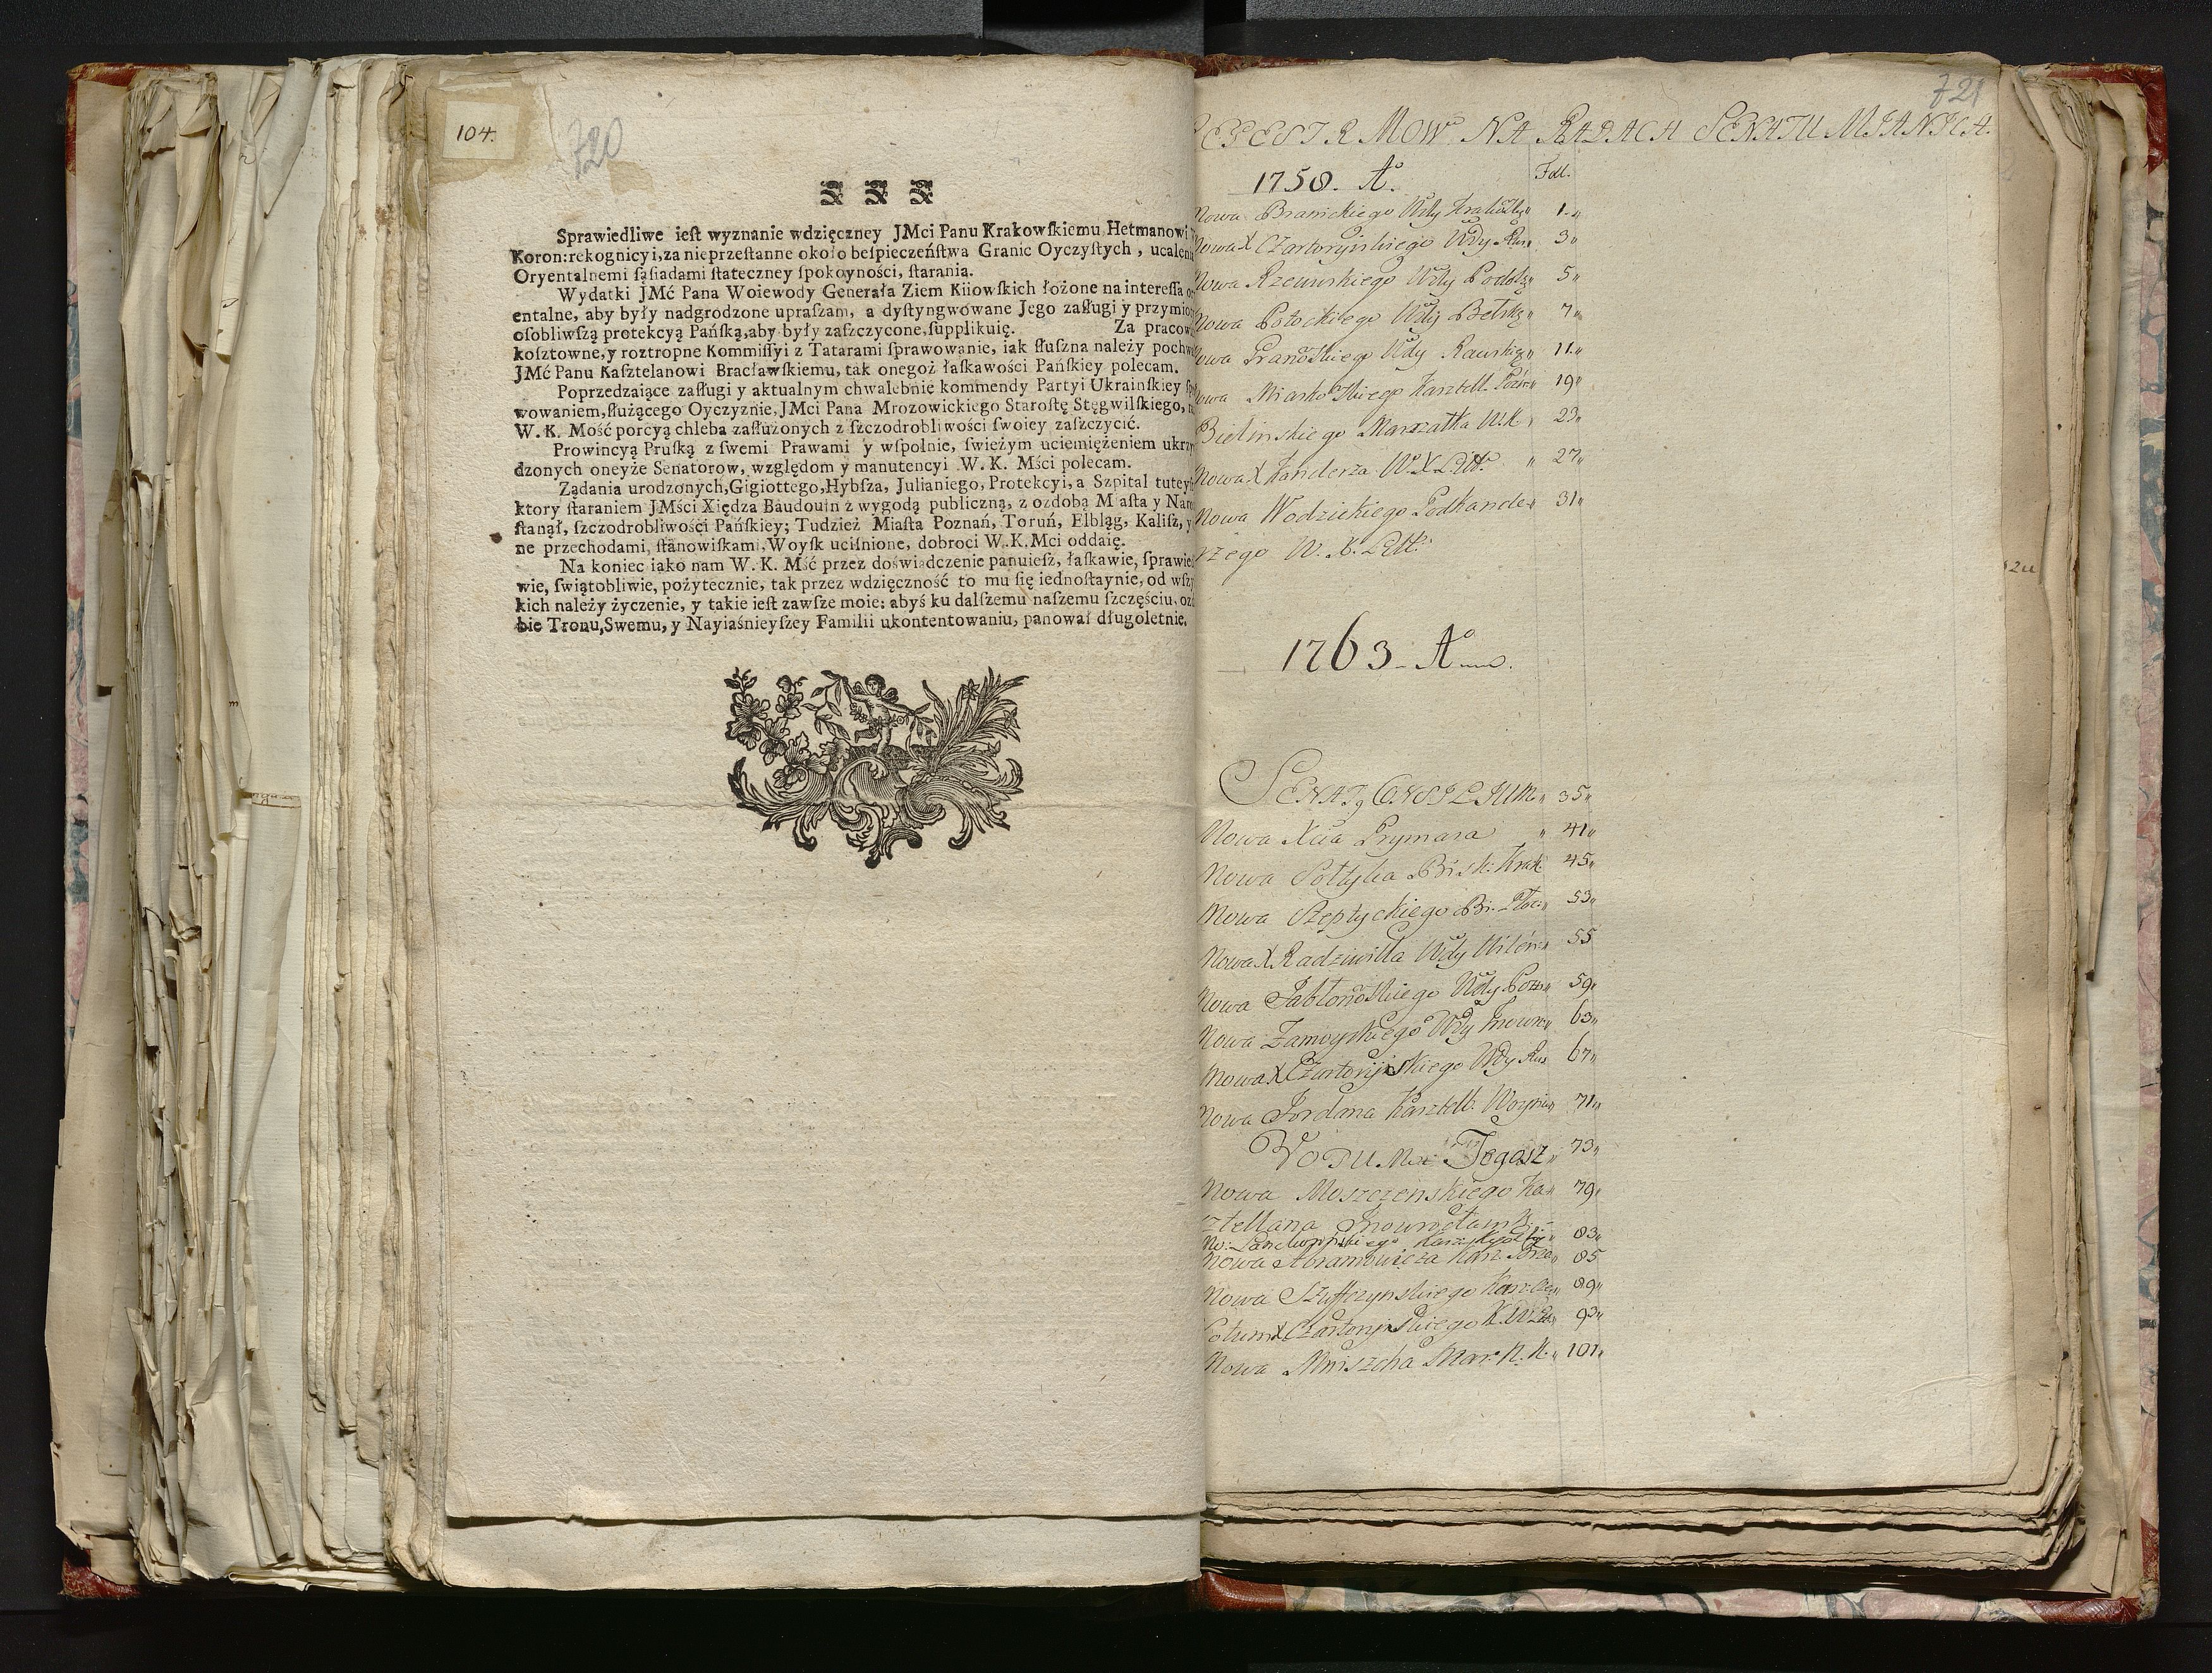 104.
720
Sprawiedliwe ieſt wyznanie wdzięczney JMci Panu Krakowſkiemu Hetmanowi
Koron: rekognicyi, za nieprzeſtanne około beſpieczeńſtwa Granic Oyczyſtych, ucaleni
Oryentalnemi ſąſiadami ſtateczney ſpokoyności, ſtarania.
Wydatki JMć Pana Woiewody Generała Ziem Kiiowſkich łożone na intereſſa o
entalne, aby były nadgrodzone upraſzam, a dyſtyngwowane Jego zaſługi y przymio
oſobliwſzą protekcyą Pańſką, aby były zaſzczycone, ſupplikuię. Za pracow
koſztowne, y roztropne Kommiſſyi z Tatarami ſprawowanie, iak ſłuſzna należy pochw
JMć Panu Kaſztelanowi Bracławſkiemu, tak onegoż łaſkawości Pańſkiey polecam.
Poprzedzaiące zaſługi y aktualnym chwalebnie kommendy Partyi Ukrainſkiey ſp
wowaniem, ſłużącego Oyczyznie, JMci Pana Mrozowickiego Staroſtę Stęgwilſkiego,
W. K. Mość porcyą chleba zaſłużonych z ſzczodrobliwości ſwoiey zaſzczycić.
Prowincyą Pruſką z ſwemi Prawami y wſpolnie, ſwieżym uciemiężeniem ukrzy
dzonych oneyże Senatorow, względom y manutencyi W. K. Mści polecam.
Ządania urodzonych, Gigiottego, Hybſza, Julianiego, Protekcyi, a Szpital tutey
ktory ſtaraniem JMści Xiędza Baudouin z wygodą publiczną, z ozdobą Miaſta y Nar
ſtanął, ſzczodrobliwości Pańſkiey; Tudzież Miaſta Poznań, Toruń, Elbląg, Kaliſz, y
ne przechodami, ſtanowiſkami, Woyſk uciśnione, dobroci W.K.Mci oddaię.
Na koniec iako nam W. K. Mść przez doświadczenie panuiesz, łaſkawie, ſprawied
wie, ſwiątobliwie, pożytecznie, tak przez wdzięczność to mu ſię iednoſtaynie, od wſzy
kich należy życzenie, y takie ieſt zawſze moie: abyś ku dalſzemu naſzemu ſzczęściu, oz
bie Tronu, Swemu, y Nayiaśnieyſzey Familii ukontentowaniu, panował długoletnie.
721
EGESTR MOW NA RADACH SENATU MIANYCH.
1758. Aº. Fol.
Mowa Branickiego Wdy Krakoskgº 1.
Mowa X Czartoryiskiego Wdy Rus 3
Mowa Rzewuskiego Wdy Podolsg 5
Mowa Potockiego Wdy Bełskg 7
Mowa Granoskiego Wdy Rawskieg 11.
Mowa Miaskoskiego Kasztell. Pozn 19
Bielinskiego Marszałka W.K. 23
Mowa X Kanclerza W. X. Litt. 27
Mowa Wodzickiego Podkancle 31
rzego W. X. Litt.
1763 Aº
SENAT9 CONSILIUM 35
Mowa Xcia Prymasa 41
Mowa Sołtyka Bisk: Krak 45
Mowa Szeptyckiego Bi. Płoc: 53
Mowa X Radziwiłła Wdy Wilen 55
Mowa Jabłonoskiego Wdy Pozn 59
Mowa Zamoyskiego Wdy Inowr: 63
Mowa X Czartoryiskiego Wdy Rus 67
Mowa Jordana Kasztell. Woynic 71
VOTUM Tegosz 73
Mowa Moszczenskiego Ka 79
sztellana Inowrocławsk:
83
Mowa Abramowicza Kasz. Brz 85
Mowa Szuffczynskiego Kasz: Cze 89
Votum X Czartoryiskiego K.W.Lit 93
Mowa Mniszcha Mar: N. K. 101